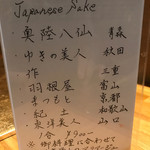 Japanese Sake
奥陸八仙 青森
ゆきの美人 秋田
作 三重
羽根屋 富山
まつもと 京都
紀土 和歌山
東洋美人 山口
1合 ¥900ー
※御料理に合わせて